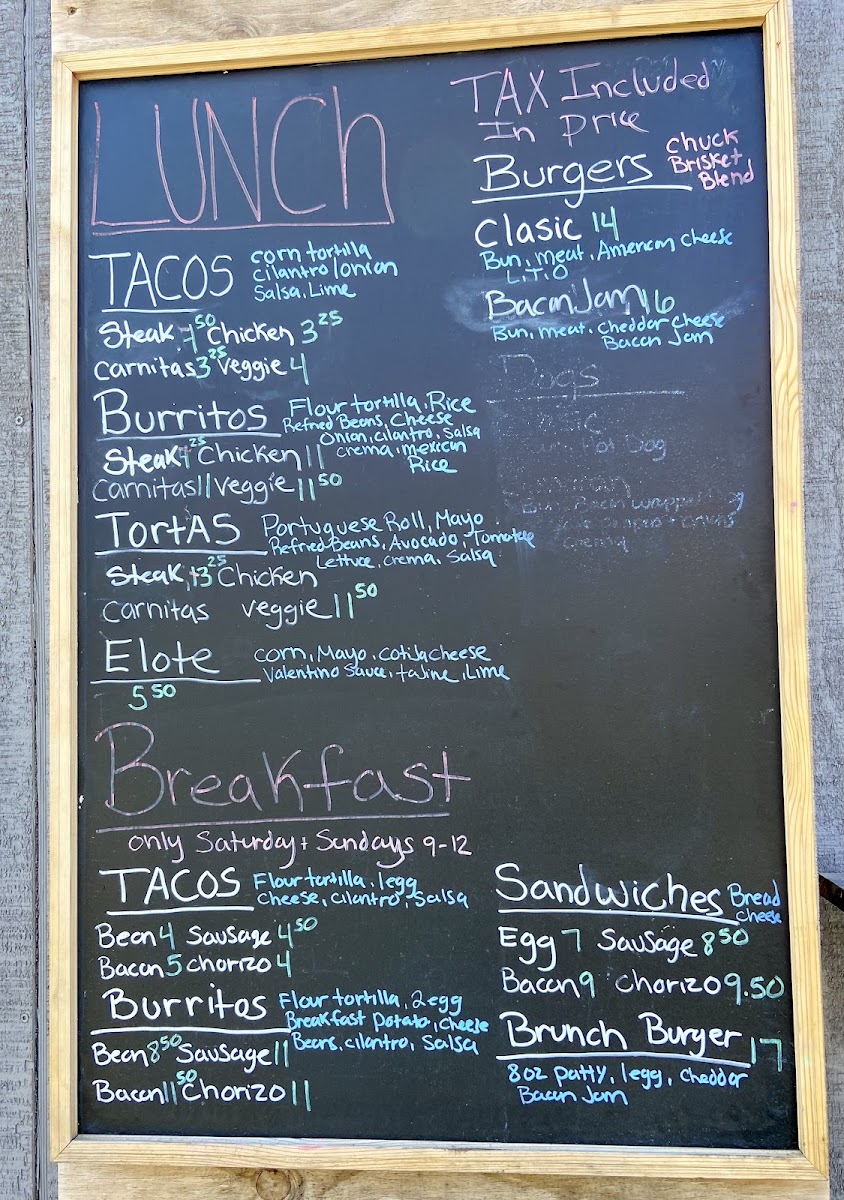 LUNCh
TACOS corn tortilla
cilantro/onion
Salsa, Lime
Steak 50 Chicken 3 25
Carnitas 3 25 Veggie 4
Burritos Flour tortilla, Rice
Refried Beans, Cheese
Onion, cilantro, Salsa
crema, mexican
Rice
Steak 25 Chicken 11
Carnitas 11 Veggie 11 50
TortAS Portuguese Roll, Mayo
Refried Beans, Avocado, Tomatoe
Lettuce, crema, Salsa
Steak, 13 25 Chicken
Carnitas veggie 11 50
Elote corn, Mayo, cotija cheese
Valentino Sauce, tajine, Lime
5 50
TAX Included
In price
Burgers Chuck
Brisket
Blend
Clasic 14
Bun, meat, American cheese
L.T.O
Bacon Jam 16
Bun, meat, cheddar cheese
Bacon Jam
Dogs
Hot Dog
crema
Breakfast
only Saturday + Sundays 9-12
TACOS Flour tortilla, 1egg
Cheese, cilantro, Salsa
Bean 4 Sausage 4 50
Bacon 5 Chorizo 4
Burritos Flour tortilla, 2egg
Breakfast Potato, cheese
Beans, cilantro, Salsa
Bean 8 50 Sausage 11
Bacon 11 50 Chorizo 11
Sandwiches Bread
cheese
Egg 7 Sausage 8 50
Bacon 9 Chorizo 9.50
Brunch Burger 17
8oz patty, 1egg, cheddar
Bacon Jam